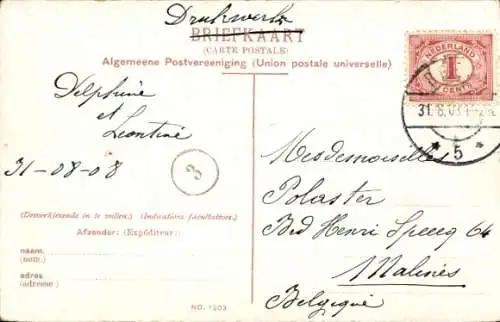 Drukwerk
BRIEFKAART
(CARTE POSTALE)
Algemeene Postvereeniging (Union postale universelle)
NEDERLAND
1
CENT
31.8.08
* 5 *
Delphine
et
Leontine
31-08-08
3
Mesdemoiselles
Polaster
Bvd Henri Speecq 64
Malines
Belgique
in te vullen.) (Indications facultatives.)
Afzender: (Expéditeur:)
naam,
(nom.)
adres
(adresse.)
NO. 1203